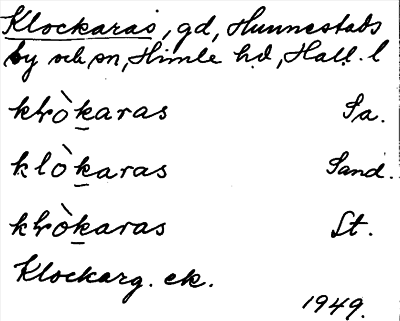 Klockaras, gd, Hunnestads
by och sn, Himle hd, Hall. l
kɫròkaras Sa.
klòkaras Sand.
kɫròkaras St.
Klockarg. ek.
1949.